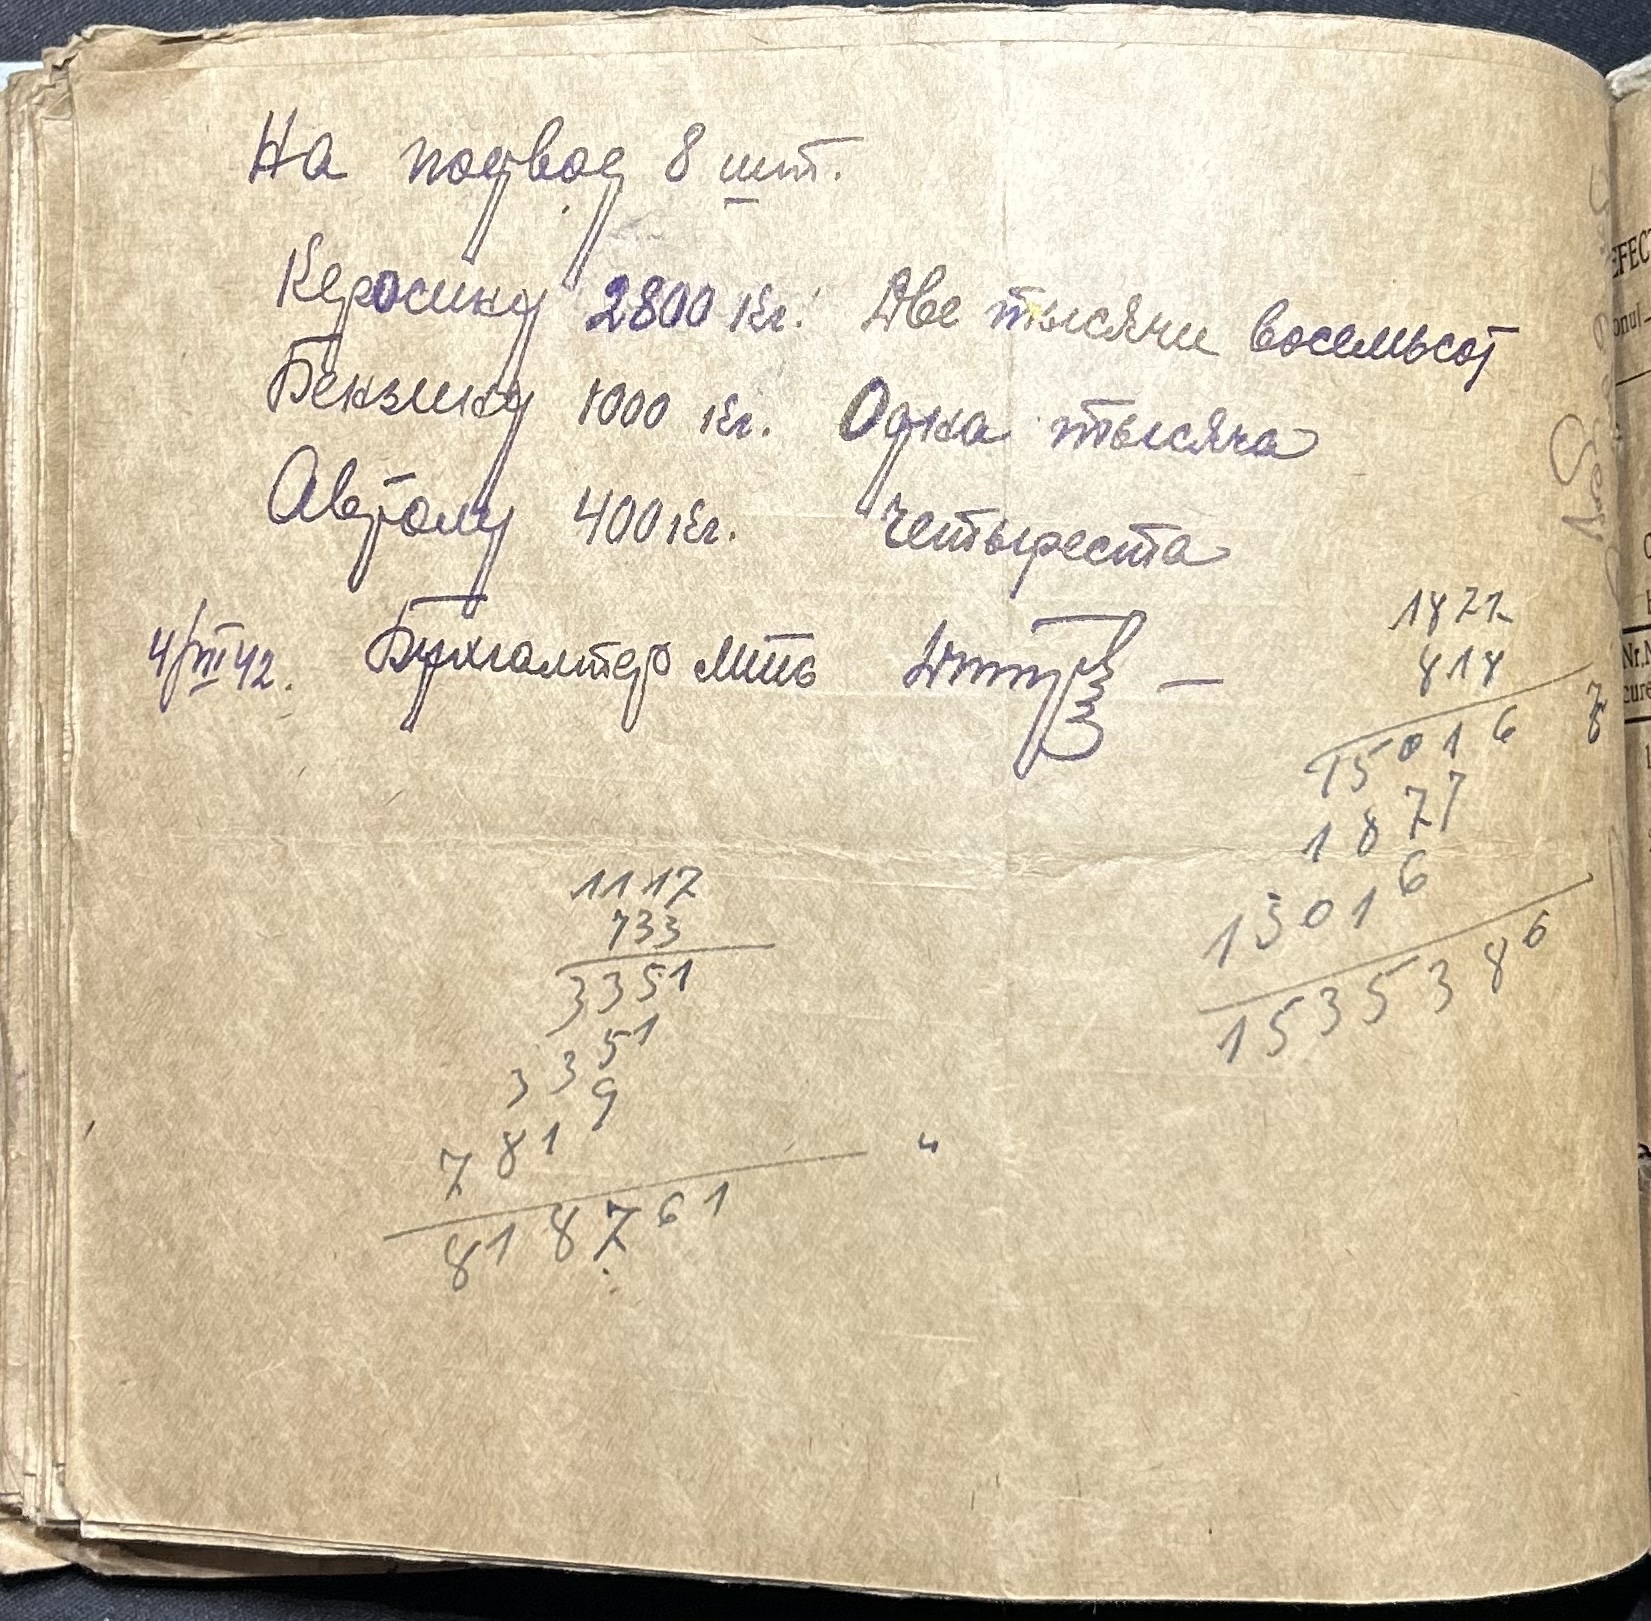 На подвод 8 шт.
Керосину 2800 кг. Две тысячи восемьсот
Бензину 1000 кг. Одна тысяча
Автолу 400 кг. четыреста
4/III 42. Бухгалтер
1877
818
15016
1877
15016
1535386
1117
733
3351
3351
7819
818761